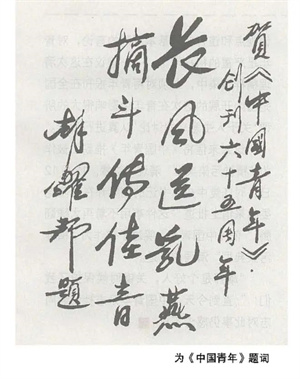 賀《中國青年》
创刊六十五周年
长风送乳燕
摘斗傳佳音
胡耀邦题
为《中国青年》题词